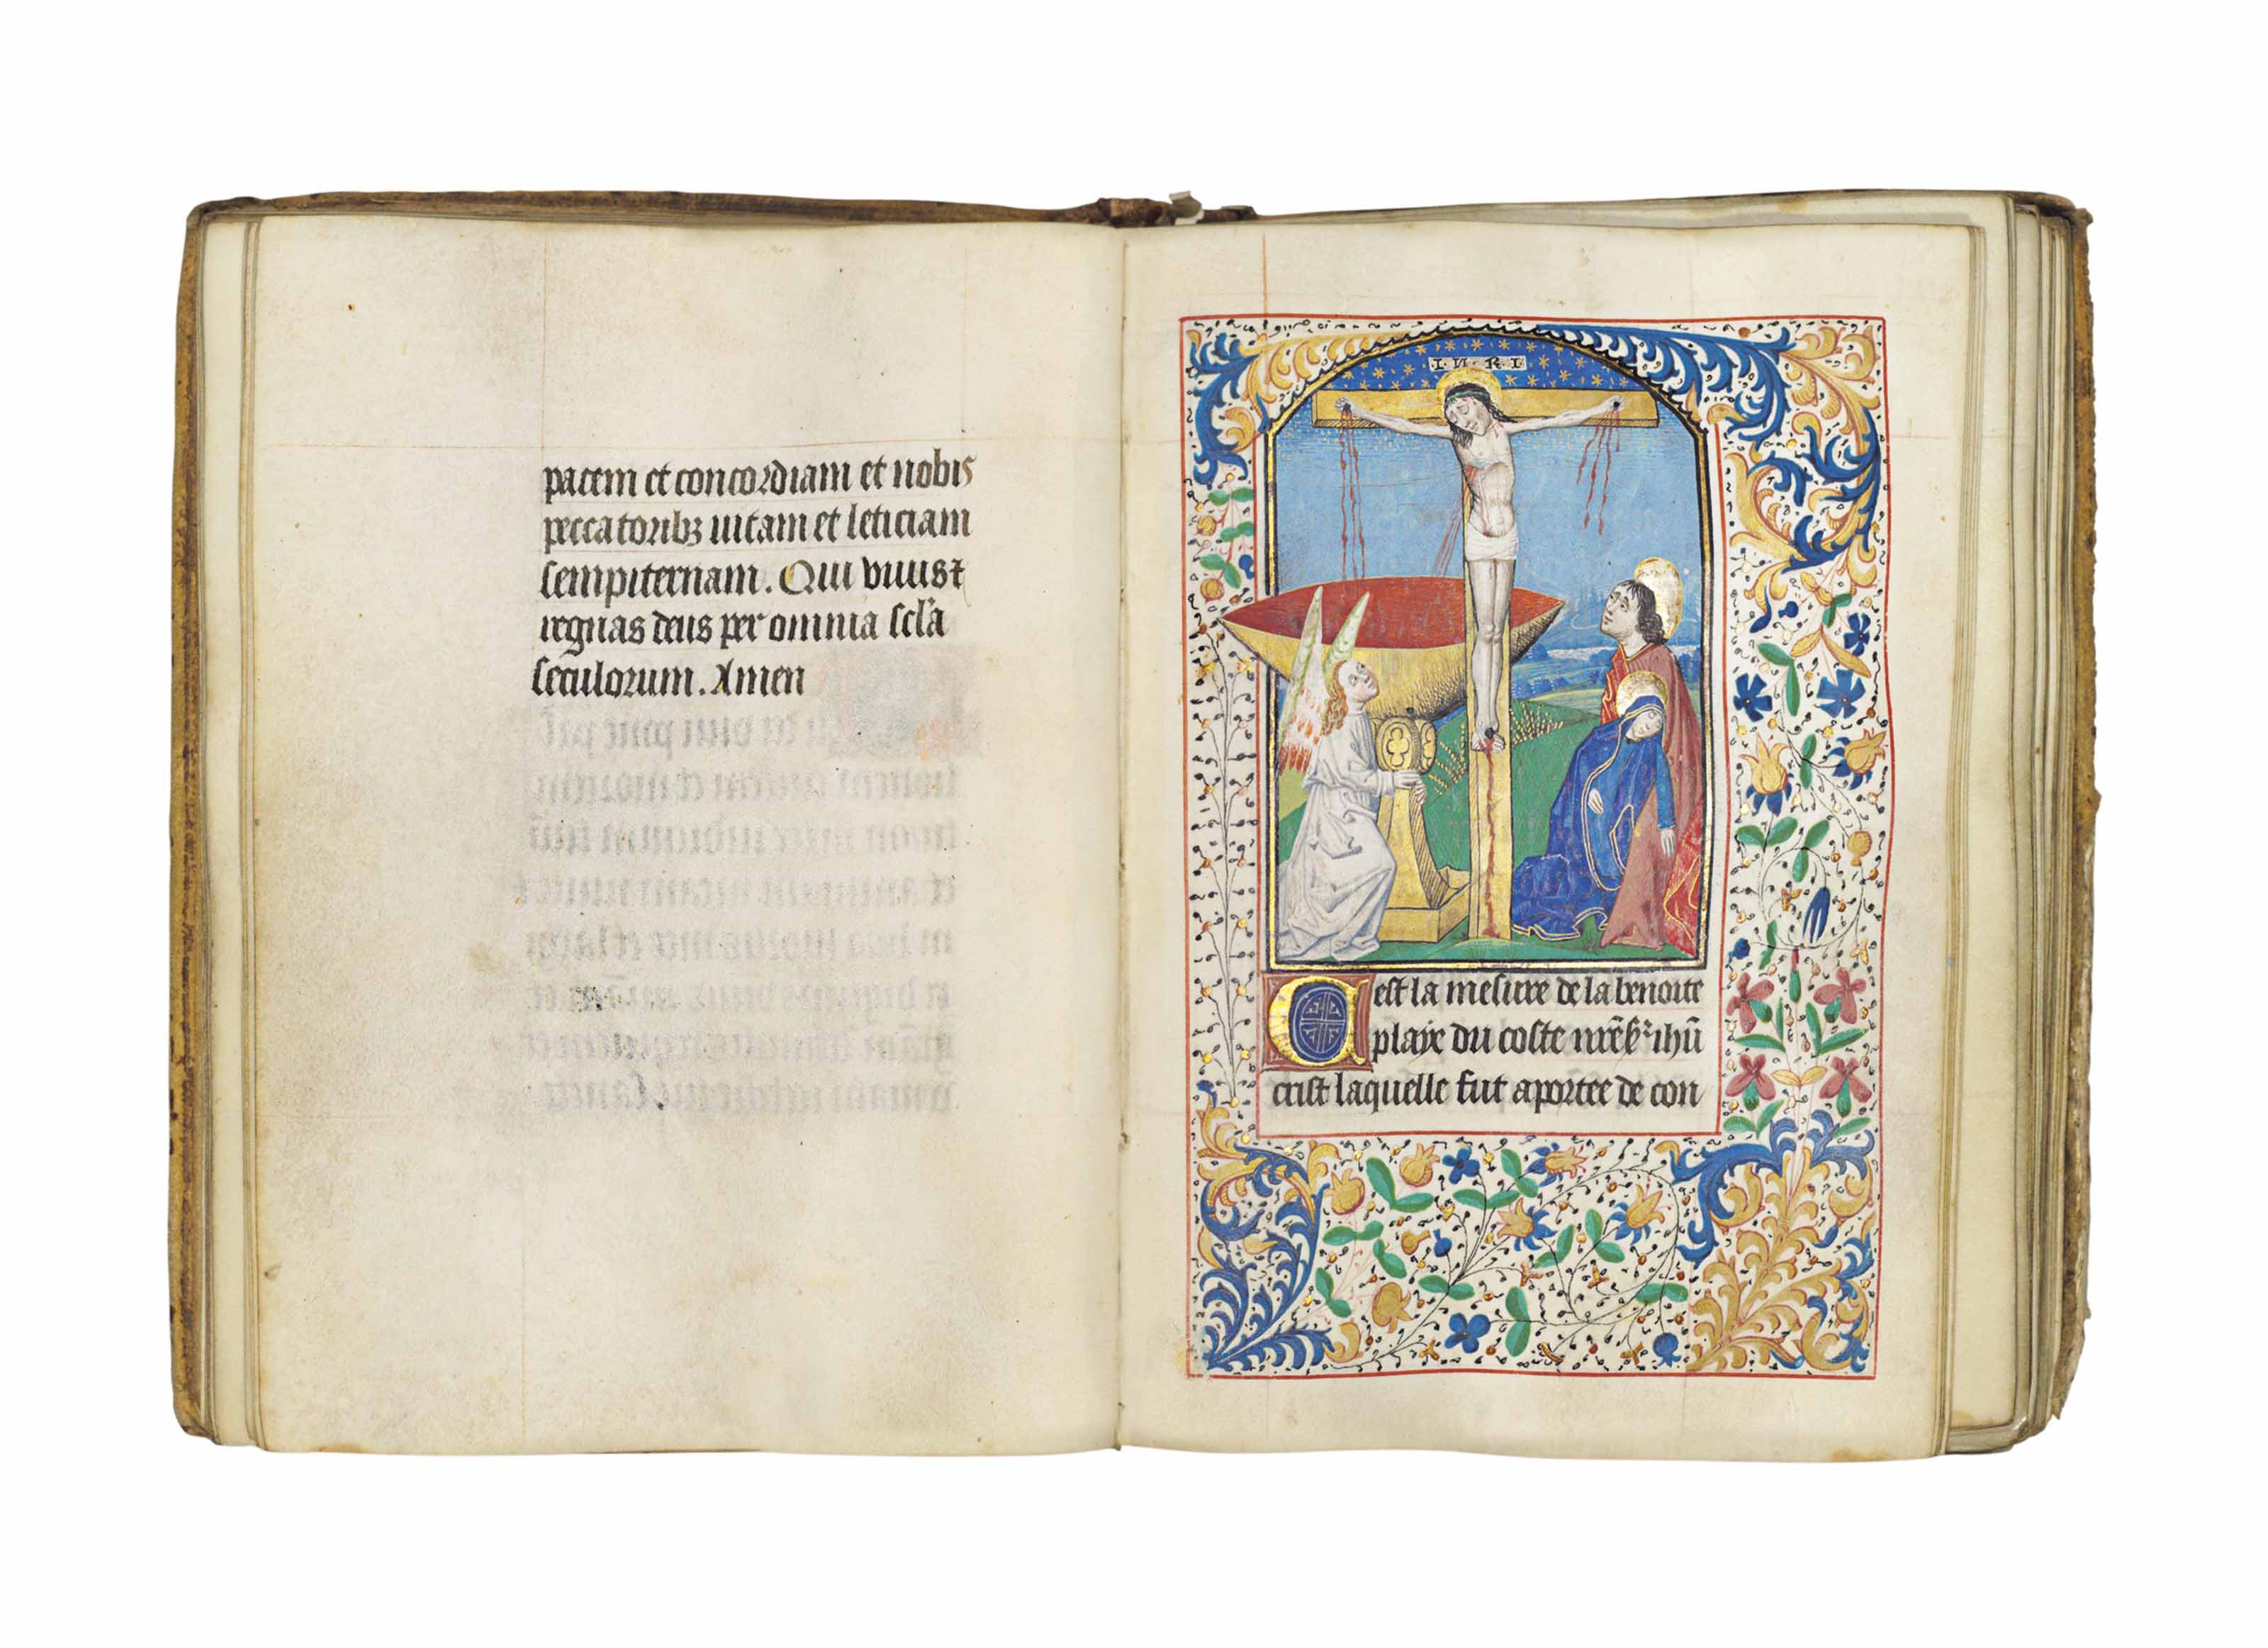 pacem et concordiam et nobis
peccatoribꝫ uitam et leticiam
sempiternam. Qui viuis ⁊
regnas deus per omnia scl̄a
seculorum. Amen
I·N·R·I
Cest la mesure de la benoite
playe du coste nr̄e sʳ ihū
crist laquelle fut aportee de con